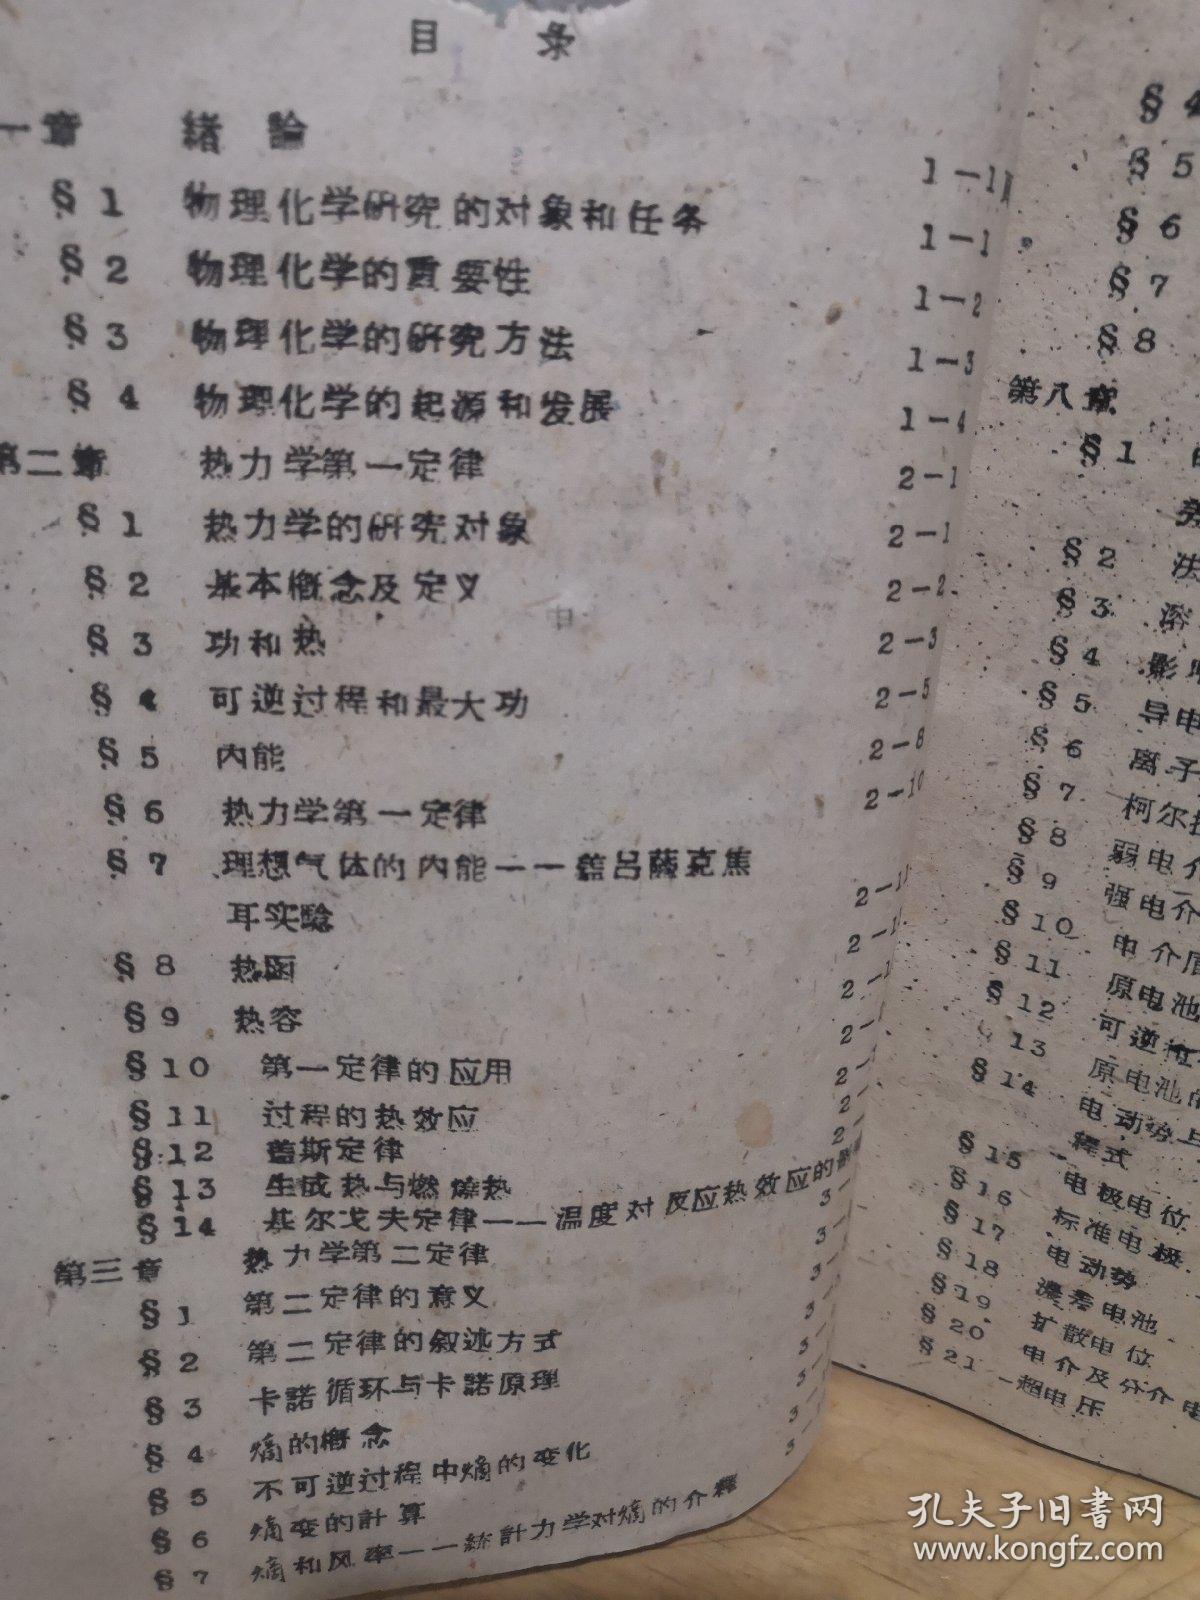 目 录
一章 緒論
§1 物理化学研究的对象和任务 1-1
§2 物理化学的重要性 1-1
§3 物理化学的研究方法 1-2
§4 物理化学的起源和发展 1-3
1-4
第二章 热力学第一定律 2-1
§1 热力学的研究对象 2-1
§2 基本概念及定义 2-2
§3 功和热 2-3
§4 可逆过程和最大功 2-5
§5 内能 2-8
§6 热力学第一定律 2-10
§7 理想气体的内能——盖呂薩克焦
耳实驗
§8 热函
§9 热容
§10 第一定律的应用
§11 过程的热效应
§12 盖斯定律
§13 生成热与燃燒热
§14 基尔戈夫定律——温度对反应热效应的
第三章 热力学第二定律
§1 第二定律的意义
§2 第二定律的叙述方式
§3 卡諾循环与卡諾原理
§4 熵的概念
§5 不可逆过程中熵的变化
§6 熵变的計算
§7 熵和风率——統計力学对熵的介釋
§4
§5
§6
§7
§8
第八章
§1
§2 法
§3 溶
§4 影响
§5 导电
§6 离子
§7 柯尔
§8 弱电介
§9 强电介
§10 电介质
§11 原电池
§12 可逆
13 原电池的
§14 电动势与
程式
§15 电极电位
§16 标准电极
§17 电动势
§18 濃差电池
§19 扩散电位
§20 电介及分介电
§21 超电压
孔夫子旧书网
www.kongfz.com